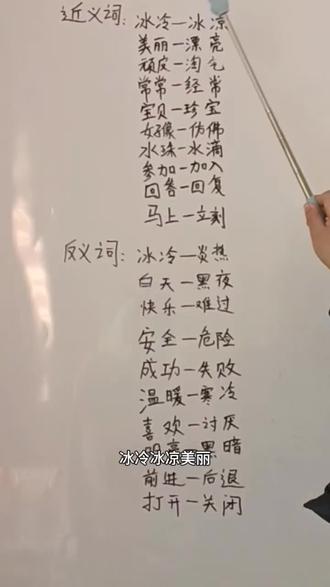 近义词：冰冷—冰凉
美丽—漂亮
顽皮—淘气
常常—经常
宝贝—珍宝
好像—仿佛
水珠—水滴
参加—加入
回答—回复
马上—立刻
反义词：冰冷—炎热
白天—黑夜
快乐—难过
安全—危险
成功—失败
温暖—寒冷
喜欢—讨厌
黑暗
冰冷冰凉美丽
前进—后退
打开—关闭